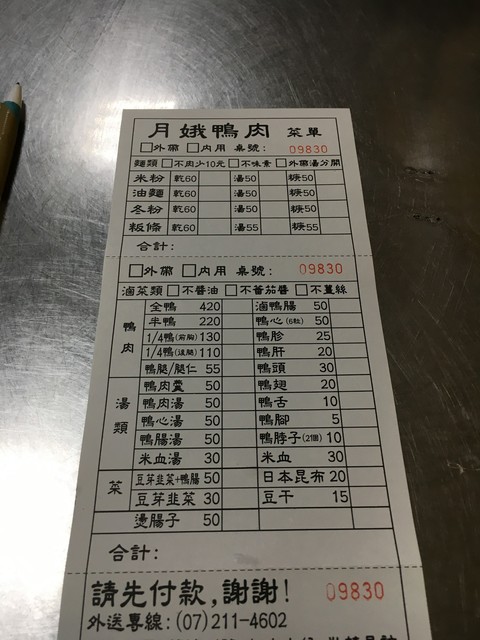 月娥鴨肉 菜單
□外帶 □內用 桌號: 09830
麵類 □不肉少10元 □不味素 □外帶湯分開
米粉 乾60 湯50 粳50
油麵 乾60 湯50 粳50
冬粉 乾60 湯50 粳50
粄條 乾60 湯55 粳55
合計:
□外帶 □內用 桌號: 09830
滷菜類 □不醬油 □不蕃茄醬 □不薑絲
鴨肉 全鴨 420 滷鴨腸 50
半鴨 220 鴨心(6粒) 50
1/4鴨(前胸) 130 鴨胗 25
1/4鴨(後腿) 110 鴨肝 20
鴨腿/腿仁 55 鴨頭 30
湯類 鴨肉羹 50 鴨翅 20
鴨肉湯 50 鴨舌 10
鴨心湯 50 鴨腳 5
鴨腸湯 50 鴨脖子(2個) 10
米血湯 30 米血 30
菜 豆芽韭菜+鴨腸 50 日本昆布 20
豆芽韭菜 30 豆干 15
燙腸子 50
合計:
請先付款,謝謝! 09830
外送專線:(07)211-4602